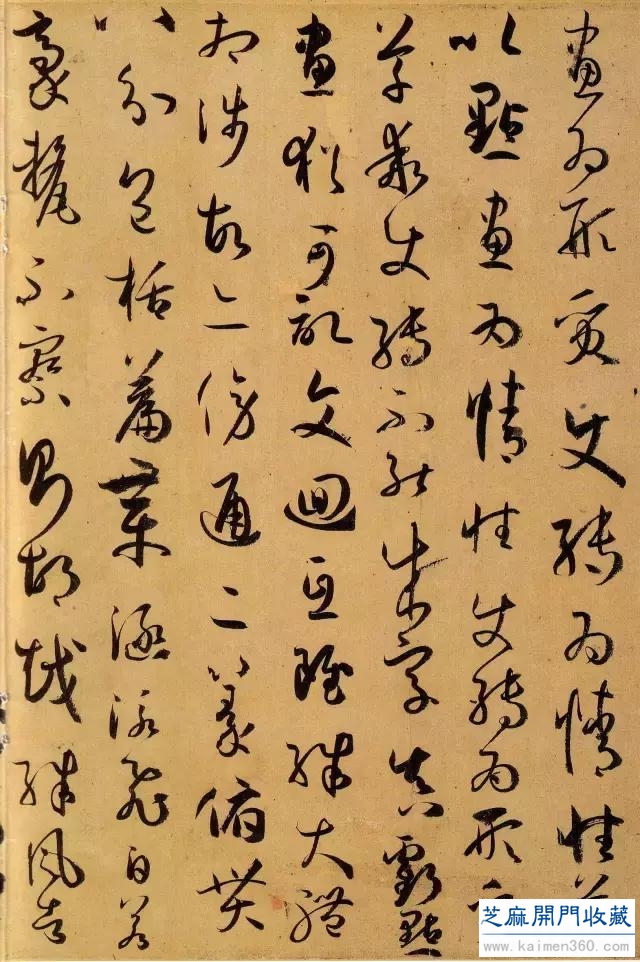 畫為形質使轉為情性草
以點畫為情性使轉為形
草乖使轉不能成字真虧點
畫猶可記文迴互雖殊大體
相涉故亦傍通二篆俯貫
八分包括篇章涵泳飛白若
豪釐不察則胡越殊風者
芝麻開門收藏
www.kaimen360.com